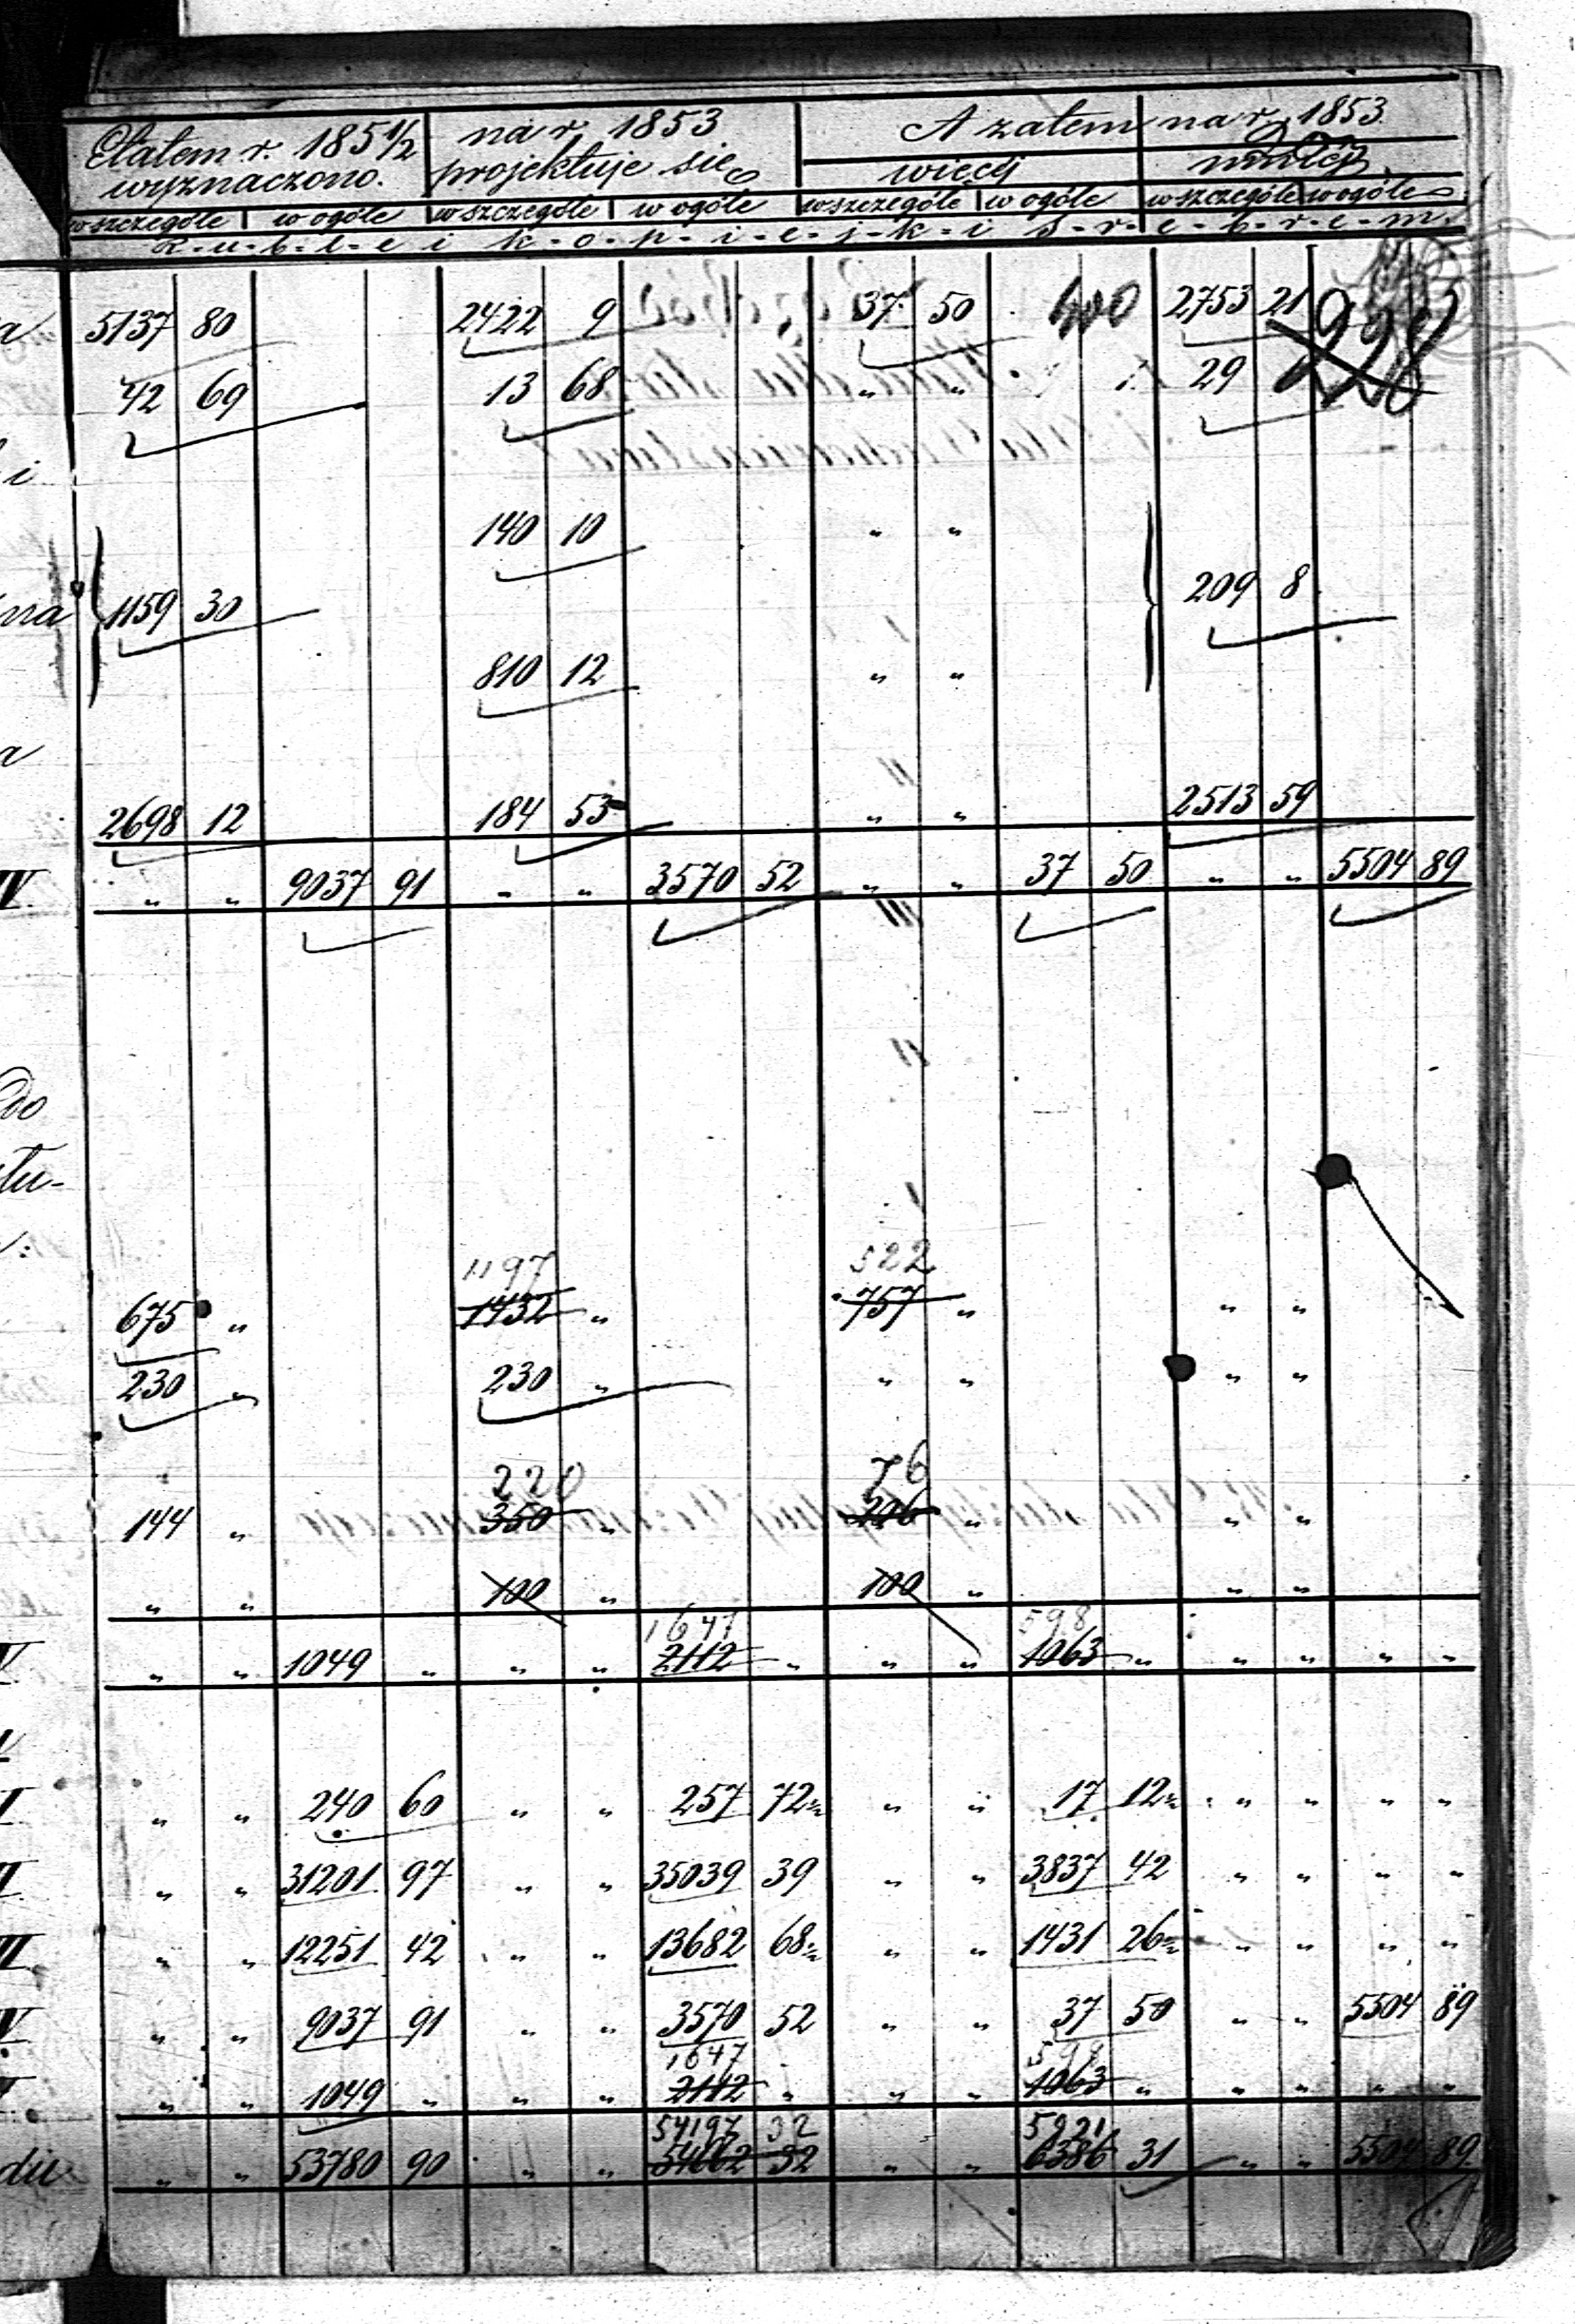 Etatem r. 1851/2 na r. 1853 A zatem na r. 1853.
wyznaczono. projektuje się więcej mniéj
w szczególe w ogóle w szczególe w ogóle w szczególe w ogóle w szczególe w ogóle
R-u-b-l-e i k-o-p-i-e-j-k-i s-r-e-b-r-e-m.
5137 80 2422 9 37 50 2753 21 928
42 69 13 68 " " 29
i
140 10 " "
na 1159 30 209 8
810 12 " "
2698 12 184 53 " " 2513 59
IV. " " 9037 91 " " 3570 52 " " 37 50 " " 5504 89
do
tu-
1197 522
675 " 1432 " 757 " " "
230 " 230 " " " " "
220 76
144 " 350 " 206 " " "
" " 100 " 100 " " "
1647 598
V. " " 1049 " " " 2112 " " " 1063 " " " " "
I " " 240 60 " " 257 72 " " 17 12 " " " "
II " " 31201 97 " " 35039 39 " " 3837 42 " " " "
III " " 12251 42 " " 13682 68 " " 1431 26 " " " "
IV " " 9037 91 " " 3570 52 " " 37 50 " " 5504 89
1647 598
V " " 1049 " " " 2112 " " " 1063 " " " " "
54197 32 5921
" " 53780 90 " " 54662 32 " " 6386 31 " " 5504 89